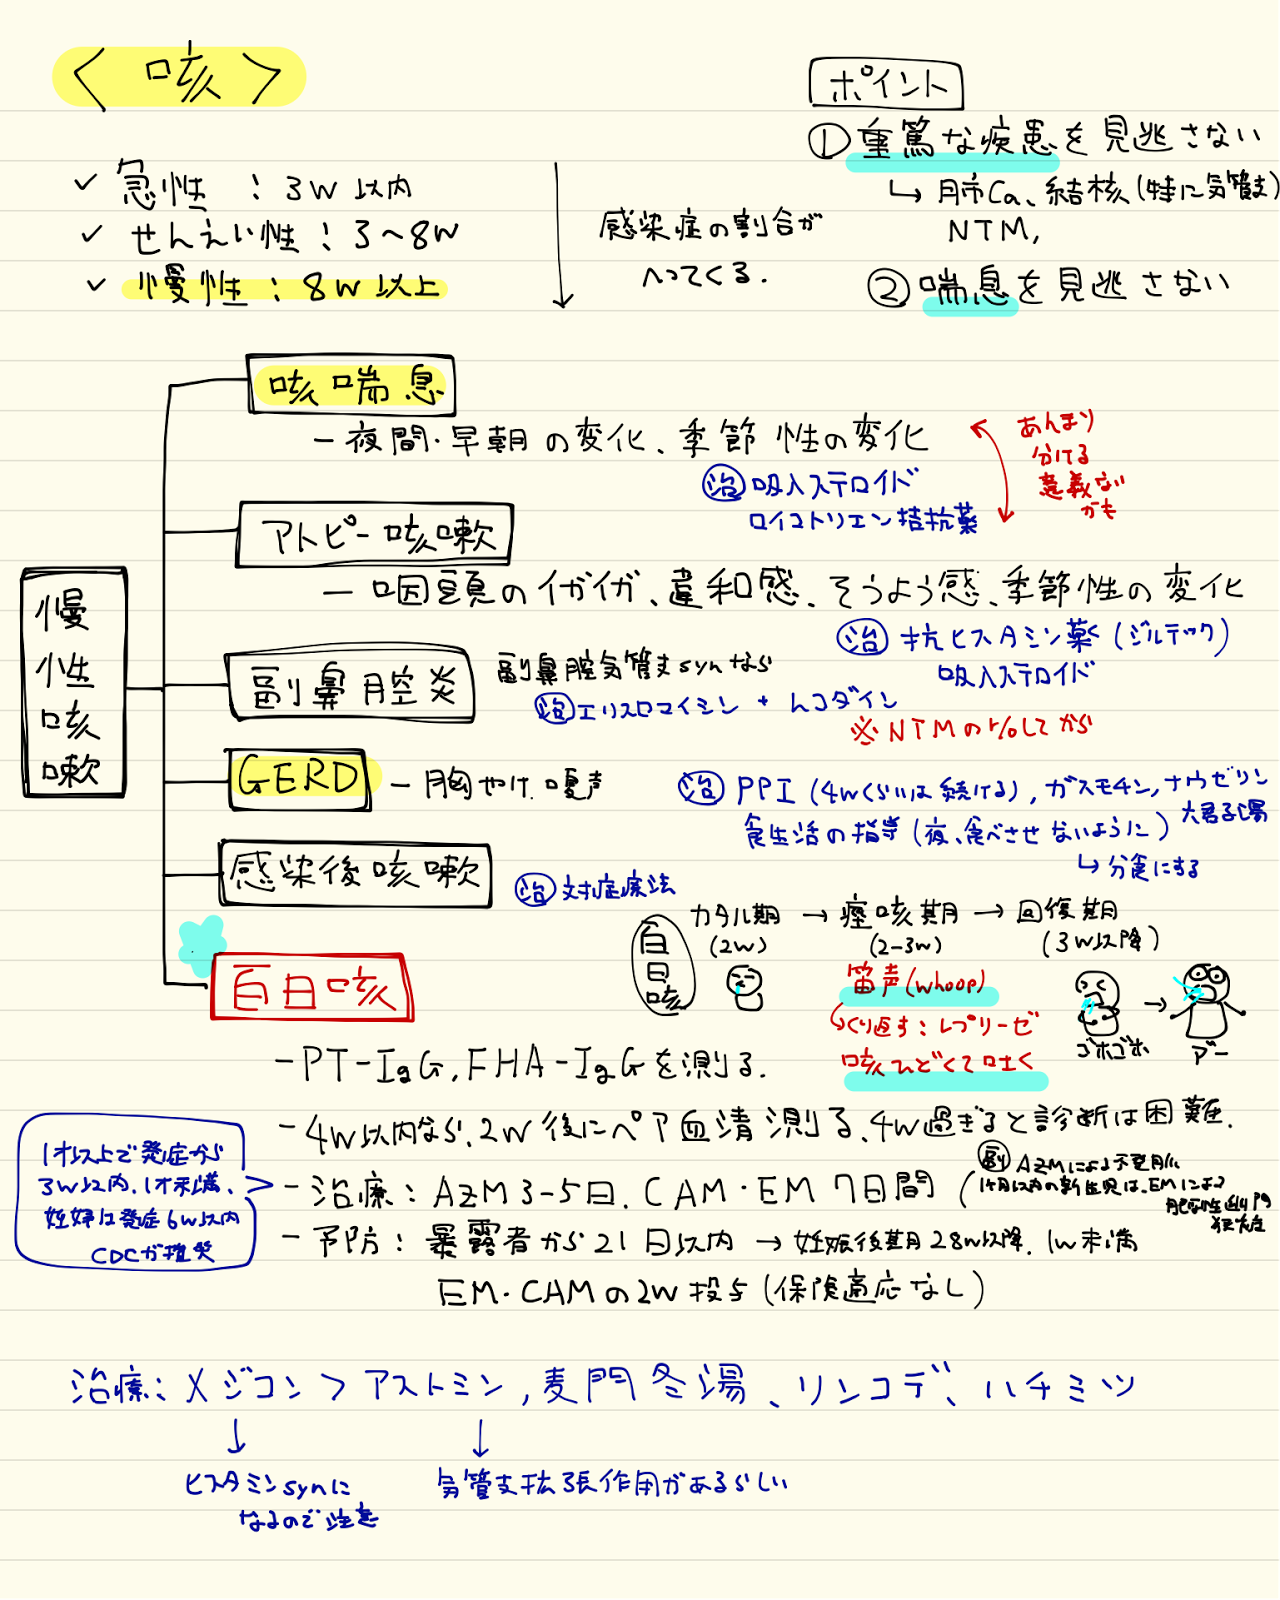 <咳>
✓ 急性 : 3w以内
✓ せんえい性 : 3〜8w
✓ 慢性 : 8w以上
感染症の割合が
へってくる.
ポイント
① 重篤な疾患を見逃さない
↳ 肺Ca、結核(特に気管支)
NTM,
② 喘息を見逃さない
慢性咳嗽
咳喘息
- 夜間・早朝の変化、季節性の変化
治 吸入ステロイド
ロイコトリエン拮抗薬
あんまり
分ける
意義ない
かも
アトピー咳嗽
- 咽頭のイガイガ、違和感、そうよう感、季節性の変化
治 抗ヒスタミン薬(ジルテック)
吸入ステロイド
副鼻腔炎
副鼻腔気管支synなら
治 エリスロマイシン + ムコダイン
※NTMのr/oしてから
GERD
- 胸やけ、嗄声
治 PPI(4wくらいは続ける), ガスモチン, ナウゼリン
六君子湯
食生活の指導(夜、食べさせないように)
↳ 分食にする
感染後咳嗽
治 対症療法
百日咳
百日咳
カタル期 → 痙咳期 → 回復期
(2w) (2-3w) (3w以降)
笛声(whoop)
くり返す:レプリーゼ
咳ひどくて吐く
ゴホゴホ → アー
- PT-IgG, FHA-IgGを測る.
- 4w以内なら、2w後にペア血清測る、4w過ぎると診断は困難.
- 治療: AZM 3-5日、CAM・EM 7日間
(副 AZMによる不整脈
1ヶ月以内の新生児は、EMによる
肥厚性幽門
狭窄症
1才以上で発症から
3w以内、1才未満、
妊婦は発症6w以内
CDCが推奨
- 予防: 暴露者から21日以内 → 妊娠後期28w以降、1w未満
EM・CAMの2w投与(保険適応なし)
治療: メジコン > アストミン, 麦門冬湯、リンコデ、ハチミツ
↓
ヒスタミンsynに
なるので注意
↓
気管支拡張作用があるらしい